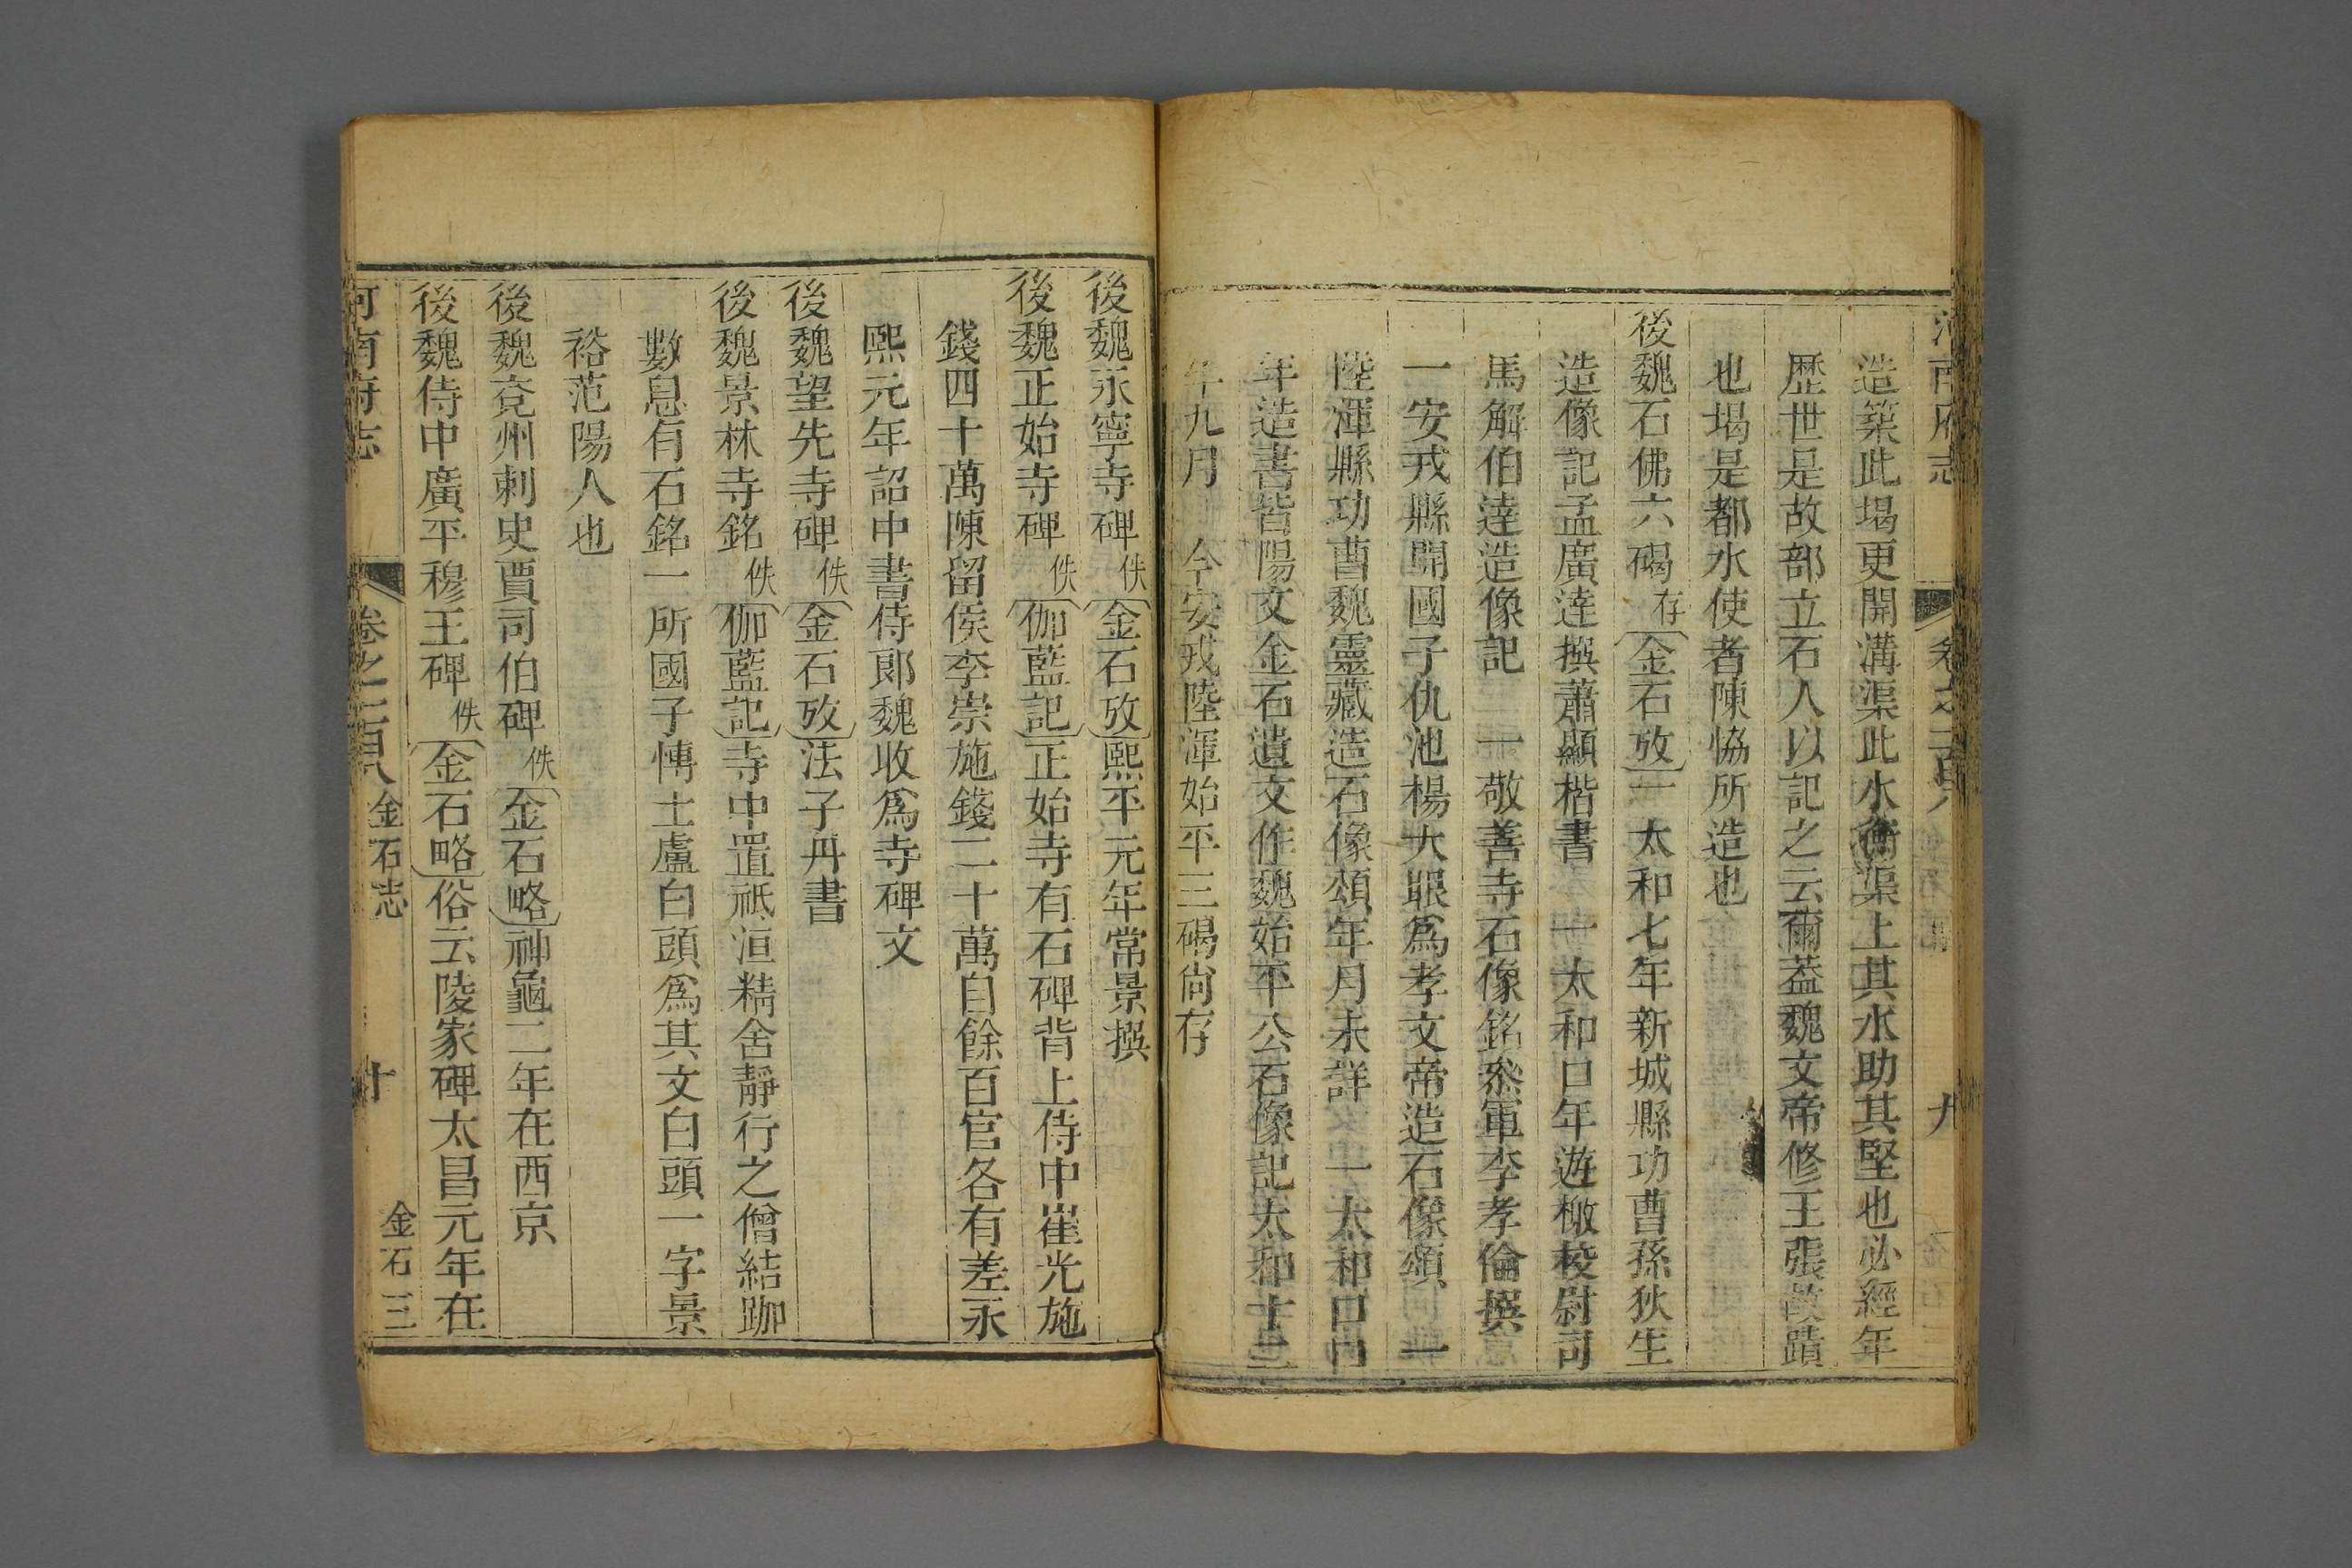 河南府志 卷之一百八 九
造築此堨更開溝渠此水衡渠上其水助其堅也必經年
歴世是故部立石人以記之云爾葢魏文帝修王張故蹟
也堨是都水使者陳恊所造也
後魏石佛六碣 存 金石攷 一太和七年新城縣功曹孫狄生
造像記孟廣達撰蕭顯楷書 一太和口年遊檄校尉司
馬解伯達造像記 一敬善寺石像銘叅軍李孝倫撰
一安戎縣開國子仇池楊大眼爲孝文帝造石像頌 一
陸渾縣功曹魏靈藏造石像頌年月未詳 一太和口口
年造書皆陽文金石遺文作魏始平公石像記太和十二
年九月 今安戎陸渾始平三碣尙存
後魏永寧寺碑 佚 金石攷 熙平元年常景撰
後魏正始寺碑 佚 伽藍記 正始寺有石碑背上侍中崔光施
錢四十萬陳留侯李崇施錢二十萬自餘百官各有差永
熙元年詔中書侍郞魏收爲寺碑文
後魏望先寺碑 佚 金石攷 法子丹書
後魏景林寺銘 佚 伽藍記 寺中置祗洹精舍靜行之僧結跏
數息有石銘一所國子愽士盧白頭爲其文白頭一字景
裕范陽人也
後魏兗州刺史賈司伯碑 佚 金石略 神龜二年在西京
後魏侍中廣平穆王碑 佚 金石略 俗云陵家碑太昌元年在
河南府志 卷之一百八 金石志 十 金石三